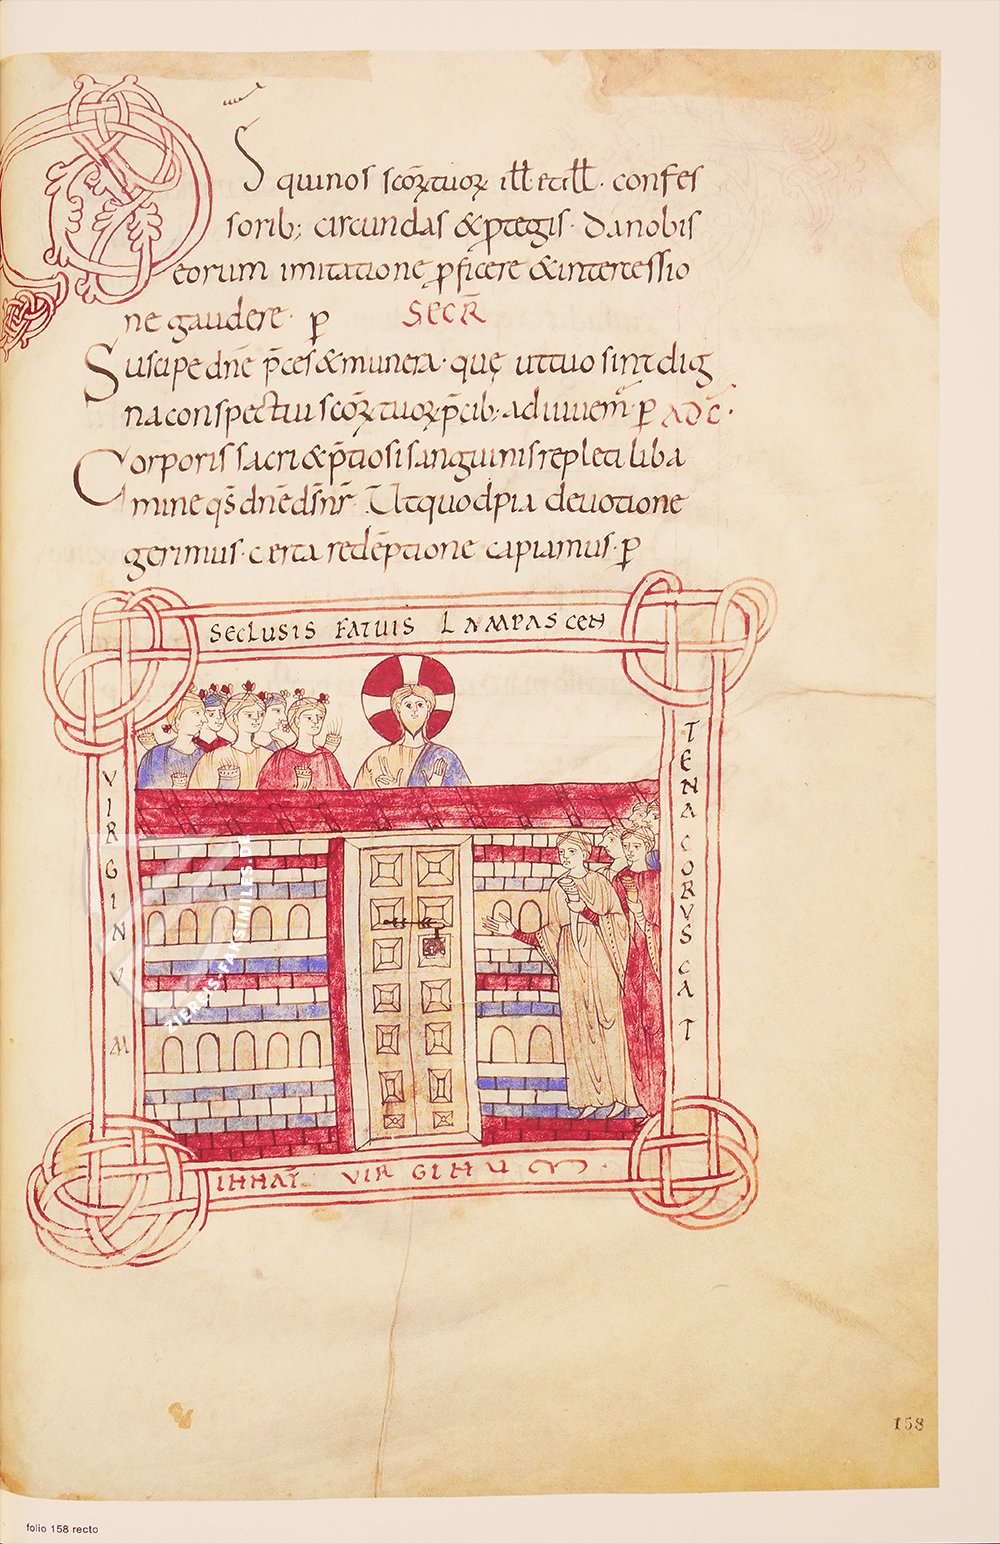 DS quinos scōꝝ tuoꝝ ill̄ &ill̄· confes
sorib; circundas & ꝓtegis· Da nobis
eorum imitatione ꝓficere & intercessio
ne gaudere· ꝑ SECR̄
Suscipe dn̄e p̄ces & munera· quę ut tuo sint dig
na conspectui scōꝝ tuoꝝ p̄cib; adiuuem̄· ꝑ AD C̄·
Corporis sacri & p̄tiosi sanguinis repleti liba
mine qs̄ dn̄e ds̄ nr̄· Ut quod pia deuotione
gerimus· certa redēptione capiamus· ꝑ
SECLUSIS FATUIS LAMPAS CEN
TENA CORVSCAT
VIRGINVM
INNAT̄ VIRGINUM·
ZIEREIS-FAKSIMILES.DE
158
folio 158 recto